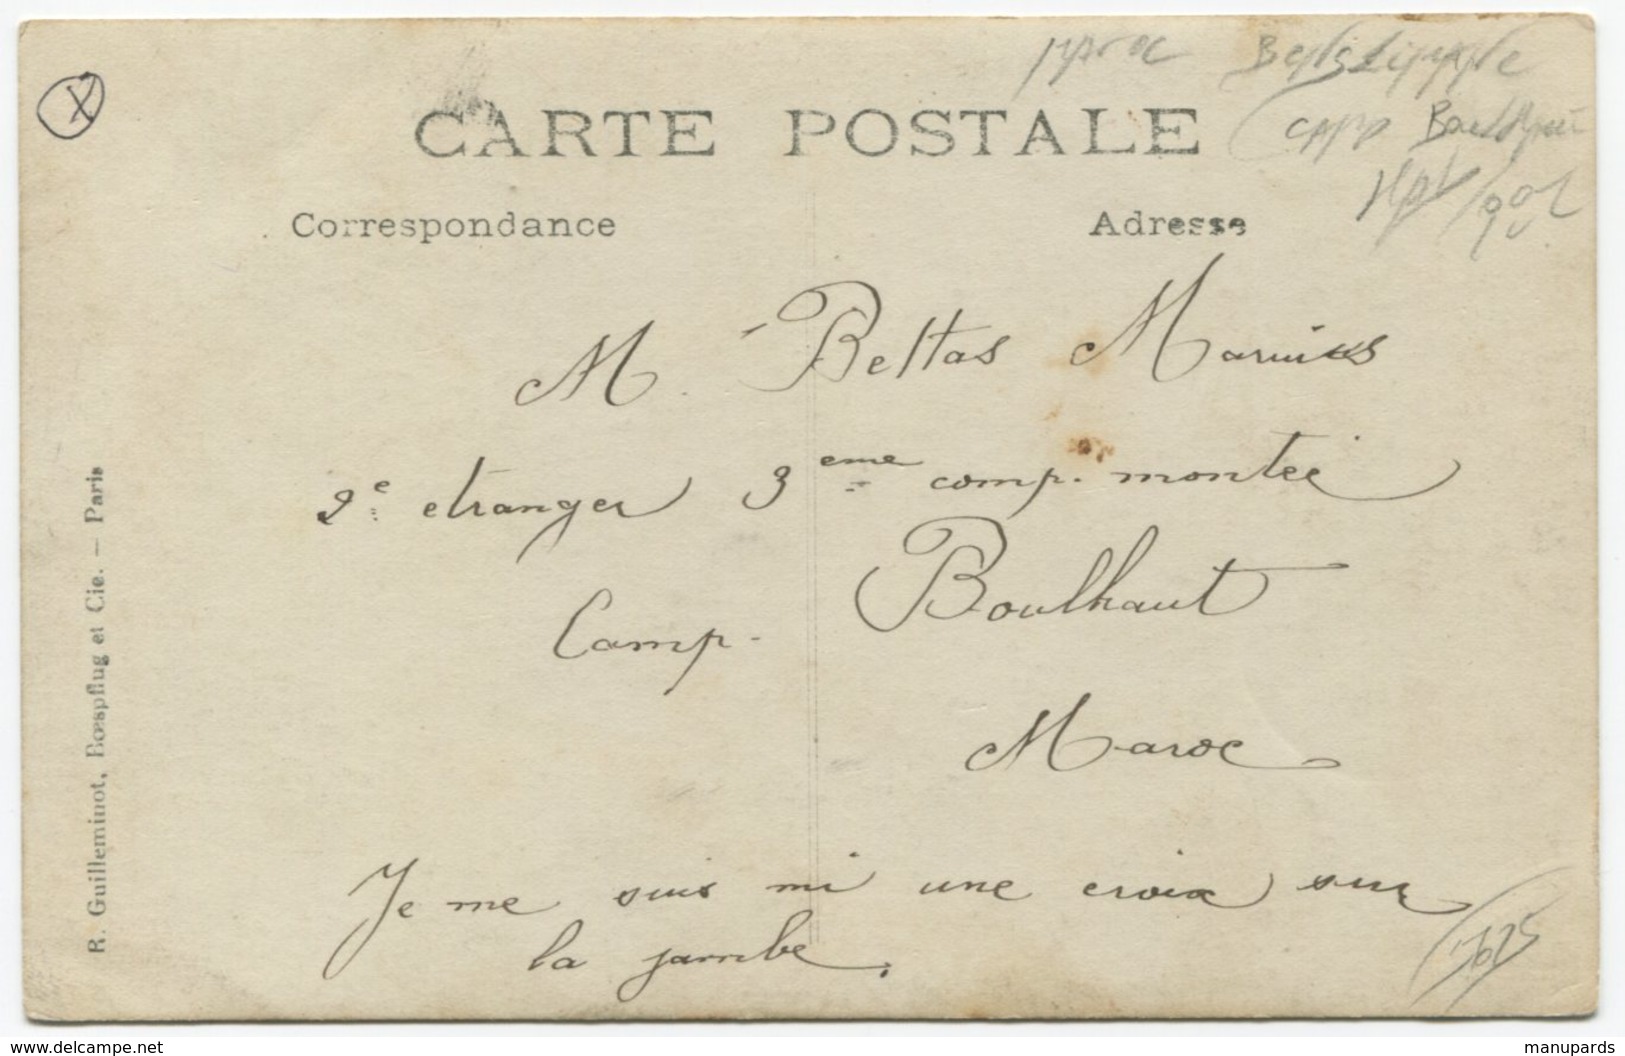 Maroc
CARTE POSTALE
Camp
Correspondance
Adresse
M. Beltas Marius
2e etranger 3eme comp. montée
Camp. Boulhaut
Maroc
Je me suis mi une croix sur
la jambe.
R. Guilleminot, Bœspflug et Cie. — Paris
X
www.delcampe.net
manupards